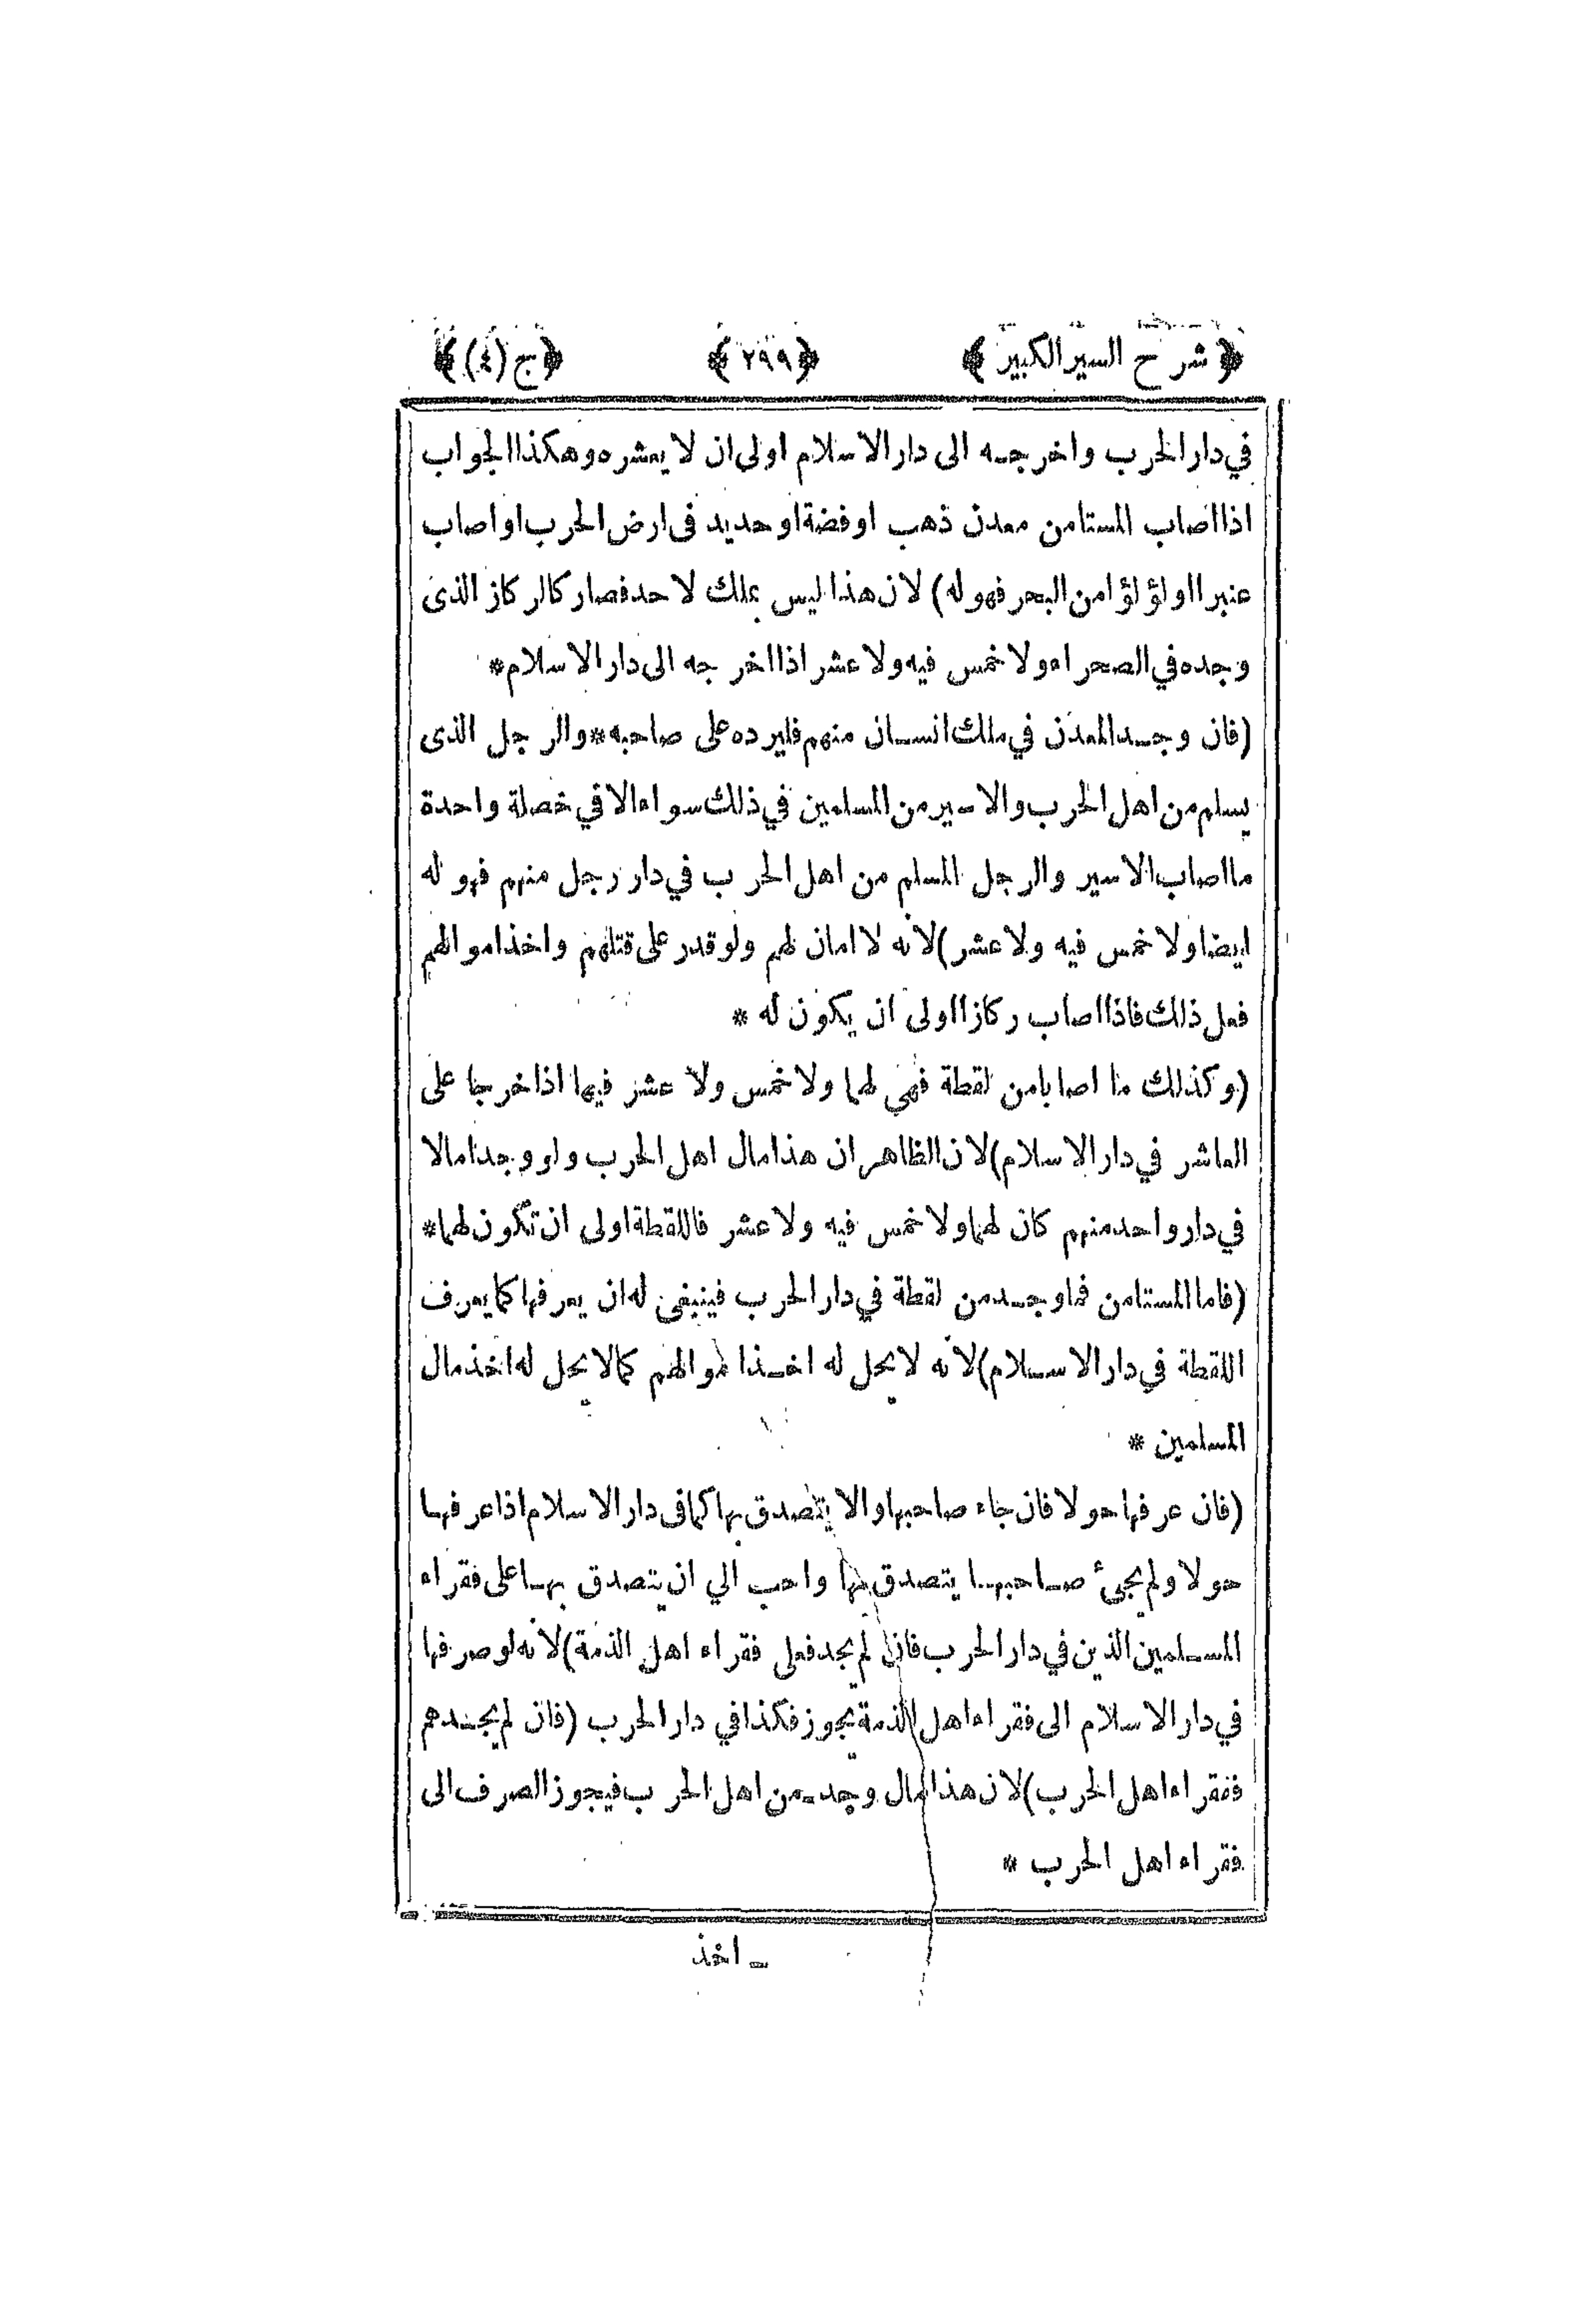 ﴿ شرح السير الكبير ﴾ ﴿ ٢٩٩ ﴾ ﴿ ج (٤) ﴾
في دار الحرب واخرجه الى دار الاسلام اولى ان لا يعشره وهكذا الجواب
اذا اصاب المستامن معدن ذهب او فضة او حديد فى ارض الحرب او اصاب
عنبرا او لؤلؤا من البحر فهو له) لان هذا ليس بملك لاحد فصار كالركاز الذى
وجده في الصحراء ولا خمس فيه ولا عشر اذا اخرجه الى دار الاسلام*
(فان وجد المعدن في ملك انسان منهم فليرده على صاحبه * والرجل الذى
يسلم من اهل الحرب والاسير من المسلمين في ذلك سواء الا في خصلة واحدة
ما اصاب الاسير والرجل المسلم من اهل الحرب في دار رجل منهم فهو له
ايضا ولا خمس فيه ولا عشر) لانه لا امان لهم ولو قدر على قتلهم واخذ اموالهم
فعل ذلك فاذا اصاب ركازا اولى ان يكون له *
(وكذلك ما اصابا من لقطة فهي لهما ولا خمس ولا عشر فيها اذا خرجا على
العاشر في دار الاسلام) لان الظاهر ان هذا مال اهل الحرب ولو وجدا مالا
في دار واحد منهم كان لهما ولا خمس فيه ولا عشر فاللقطة اولى ان تكون لهما*
(فاما المستامن فما وجد من لقطة في دار الحرب فينبغى له ان يعرفها كما يعرف
اللقطة في دار الاسلام) لانه لا يحل له اخذ اموالهم كما لا يحل له اخذ مال
المسلمين *
(فان عرفها حولا فان جاء صاحبها والا يتصدق بها كما فى دار الاسلام اذا عرفها
حولا ولم يجئ صاحبها يتصدق بها واحب الي ان يتصدق بها على فقراء
المسلمين الذين في دار الحرب فان لم يجد فعلى فقراء اهل الذمة) لانه لو صرفها
في دار الاسلام الى فقراء اهل الذمة يجوز فكذا في دار الحرب (فان لم يجدهم
ففقراء اهل الحرب) لان هذا المال وجد من اهل الحرب فيجوز الصرف الى
فقراء اهل الحرب *
اخذ